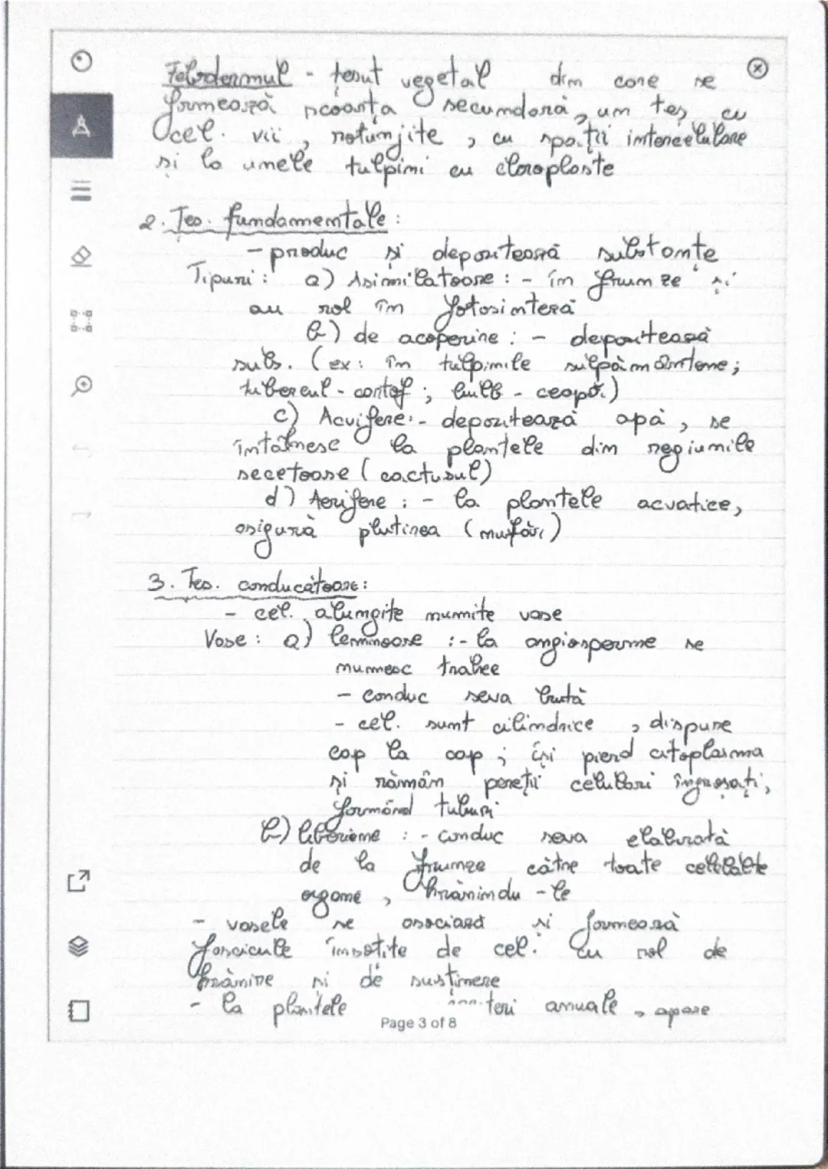 Felodermul - țesut vegetal din care se
formează scoarța secundară, un țes cu
cel. vii, rotunjite, cu spații intercelulare
și la unele tulpini cu cloroplaste
2. Țes. fundamentale:
- produc și depozitează substanțe
Tipuri: a) Asimilatoare: - în frunze și
au rol în fotosinteză
b) de acoperire: - depozitează
subs. (ex: în tulpinile subpământene;
tubercul - cartof; bulb - ceapă.)
c) Acvifere: - depozitează apă, se
întâlnesc la plantele din regiunile
secetoase (cactusul)
d) Aerifere: - la plantele acvatice,
asigură plutirea (nufăr)
3. Țes. conducătoare:
- cel. alungite numite vase
Vase: a) lemnoase: - la angiosperme se
numesc trahee
- conduc seva brută
- cel. sunt cilindrice, dispuse
cap la cap; își pierd citoplasma
și rămân pereții celulari îngroșați,
formând tuburi
b) liberiene: - conduc seva elaborată
de la frunze către toate celelalte
organe, hrănindu-le
- vasele se asociază și formează
fascicule însoțite de cel. cu rol de
hrănire și de susținere
- la plantele anuale, apare
Page 3 of 8